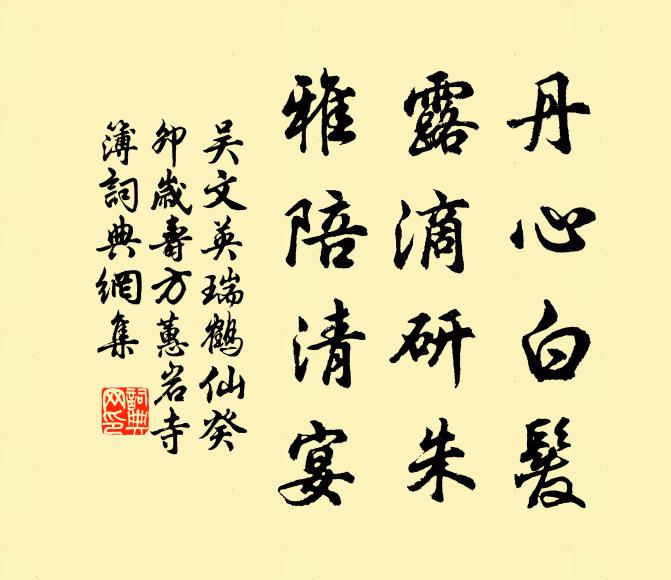 丹心白髮
露滴研朱
雅陪清宴
吴文英瑞鶴仙癸
卯歲壽方蕙岩寺
簿詞典網集
詞典
网印